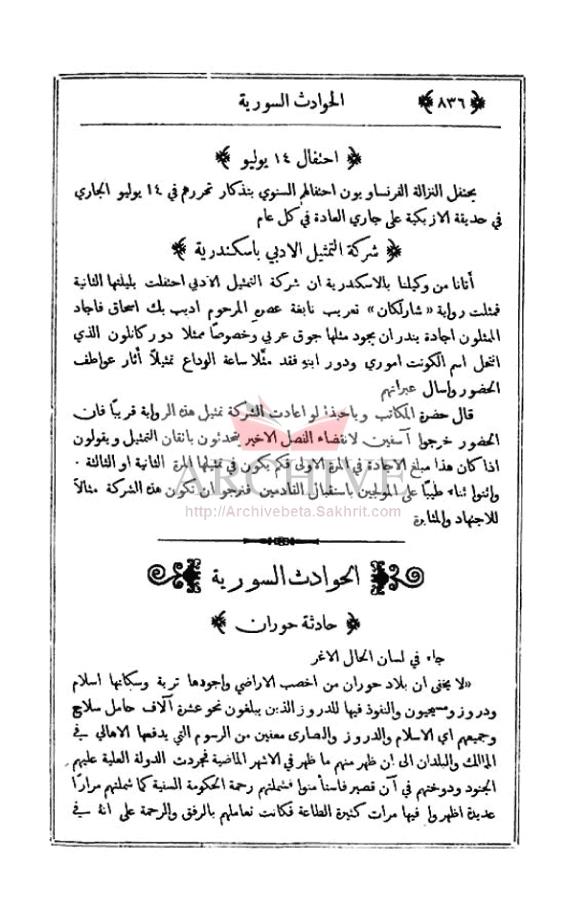 ﴿ ٨٣٦ ﴾ الحوادث السورية
﴿ احتفال ١٤ يوليو ﴾
يحتفل النزالة الفرنساويون احتفالهم السنوي بتذكار تحررهم في ١٤ يوليو الجاري
في حديقة الازبكية على جاري العادة في كل عام
﴿ شركة التمثيل الادبي باسكندرية ﴾
أتانا من وكيلنا بالاسكندرية ان شركة التمثيل الادبي احتفلت بليلتها الثانية
فمثلت رواية «شارلكان» تعريب نابغة عصره المرحوم اديب بك اسحاق فاجاد
الممثلون اجادة يندر ان يجود مثلها جوق عربي وخصوصًا ممثلا دور كانلون الذي
انتحل اسم الكونت اموري ودور ابنو فقد مثّلا ساعة الوداع تمثيلاً أثار عواطف
الحضور واسال عبراتهم
قال حضرة المكاتب وياحبذا لو اعادت الشركة تمثيل هذه الرواية قريبًا فان
الحضور خرجوا آسفين لانقضاء الفصل الاخير يتحدثون باتقان التمثيل ويقولون
اذا كان هذا مبلغ الاجادة في المرة الاولى فكم يكون في تمثيلها المرة الثانية او الثالثة ٠
واثنوا ثناء طيبًا على المولجين باستقبال القادمين فنرجو ان تكون هذه الشركة مثالاً
للاجتهاد والمثابرة
ARCHIVE
http://Archivebeta.Sakhrit.com
الحوادث السورية
﴿ حادثة حوران ﴾
جاء في لسان الحال الاغر
«لا يخفى ان بلاد حوران من اخصب الاراضي واجودها تربة وسكانها اسلام
ودروز ومسيحيون والنفوذ فيها للدروز الذين يبلغون نحو عشرة آلاف حامل سلاح
وجميعهم اي الاسلام والدروز والنصارى معفين من الرسوم التي يدفعها الاهالي في
الممالك والبلدان الى ان ظهر منهم ما ظهر في الاشهر الماضية فجردت الدولة العلية عليهم
الجنود ودوختهم في آن قصير فاستأمنوا فشملتهم رحمة الحكومة السنية كما شملتهم مرارًا
عديدة اظهروا فيها مرات كثيرة الطاعة فكانت تعاملهم بالرفق والرحمة على انهُ في